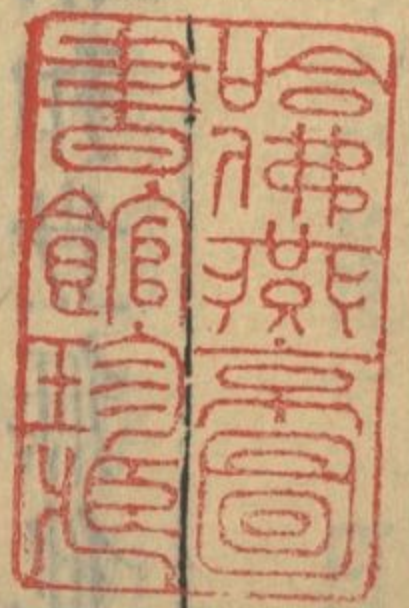 哈佛燕京圖
書館珍